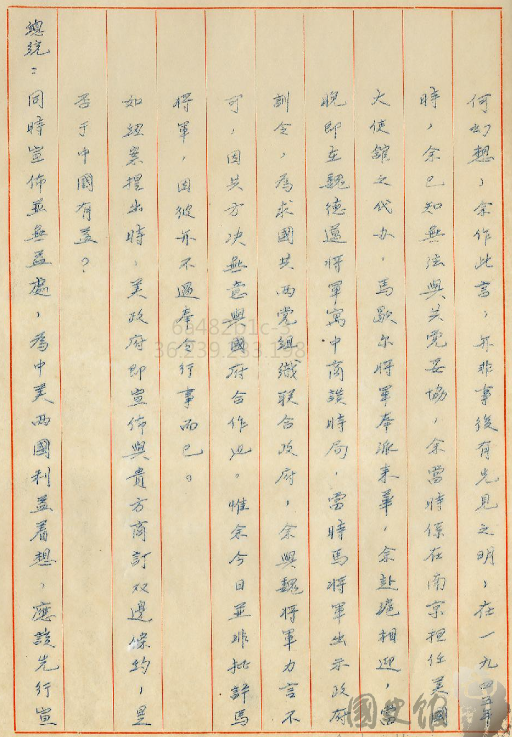 何幻想，余作此言，並非事後有先見之明，在一九四五年
時，余已知無法與共党妥協，余當時係在南京担任美國
大使舘之代办，馬歇尔將軍奉派来華，余赴滬相迎，當
晚即在魏德邁將軍寓中商談時局，當時馬將軍出示政府
訓令，為求國共两党組織联合政府，余與魏將軍力言不
可，因共方决無意與國府合作也。惟余今日並非批評馬
將軍，因彼亦不過奉令行事而已。
如經案提出時，美政府即宣佈與貴方商訂双邊條約，是
否于中國有益？
總統：同時宣佈並無益處，為中美两國利益着想，應該先行宣
6a482b1c-3
36.239.233.198
國史館